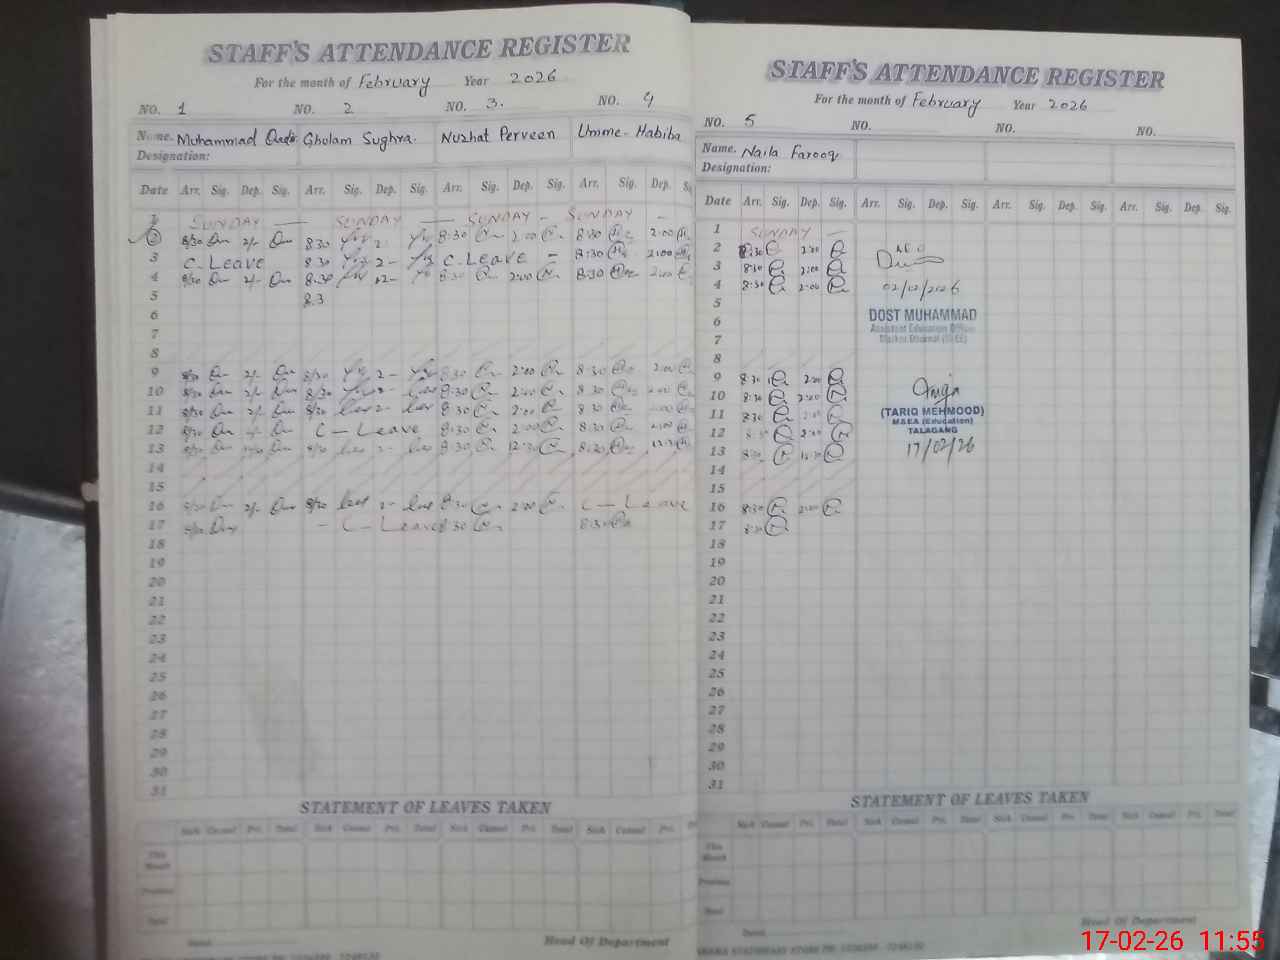 STAFF'S ATTENDANCE REGISTER
For the month of February Year 2026
NO. 1 NO. 2 NO. 3. NO. 4
Name. Muhammad Gholam Sughra. Nuzhat Perveen Umme-Habiba
Designation:
Date Arr. Sig. Dep. Sig. Arr. Sig. Dep. Sig. Arr. Sig. Dep. Sig. Arr. Sig. Dep.
1 SUNDAY — SUNDAY — SUNDAY - SUNDAY -
2 8/30 2/- 8.30 2- 8:30 2:00 8:30 2:00
3 C. Leave 8.30 2- C. Leave - 8:30 2:00
4 8/30 2/- 8.30 2- 8:30 2:00 8:30 2:00
5 8.3
6
7
8
9 8/30 2/- 8/30 2- 8:30 2:00 8:30 2:00
10 8/30 2/- 8/30 2- 8:30 2:00 8:30 2:00
11 8/30 2/- 8/30 2- 8:30 2:00 8:30 2:00
12 8/30 2/- C - Leave 8:30 2:00 8:30 2:00
13 8/30 8/30 2- 8:30 12:30 8:30 12:30
14
15
16 8/30 2/- 8/30 2- 8:30 2:00 C - Leave
17 8/30 - C - Leave 8:30 8:30
18
19
20
21
22
23
24
25
26
27
28
29
30
31
STATEMENT OF LEAVES TAKEN
Sick Casual Pri. Total Sick Casual Pri. Total Sick Casual Pri. Total Sick Casual Pri.
This Month
Previous
Total
Head Of Department
STAFF'S ATTENDANCE REGISTER
For the month of February Year 2026
NO. 5 NO. NO. NO.
Name. Naila Farooq
Designation:
Date Arr. Sig. Dep. Sig. Arr. Sig. Dep. Sig. Arr. Sig. Dep. Sig. Arr. Sig. Dep. Sig.
1 SUNDAY —
2 8:30 2:00
3 8:30 2:00
4 8:30 2:00 02/02/2026
5
6 DOST MUHAMMAD
Assistant Education Officer
7
8
9 8:30 2:00
10 8:30 2:00
11 8:30 2:00 (TARIQ MEHMOOD)
M&EA (Education)
12 8:30 2:00 TALAGANG
13 8:30 12:30 17/02/26
14
15
16 8:30 2:00
17 8:30
18
19
20
21
22
23
24
25
26
27
28
29
30
31
STATEMENT OF LEAVES TAKEN
Sick Casual Pri. Total Sick Casual Pri. Total Sick Casual Pri. Total Sick Casual Pri. Total
This Month
Previous
Total
Head Of Department
17-02-26 11:55